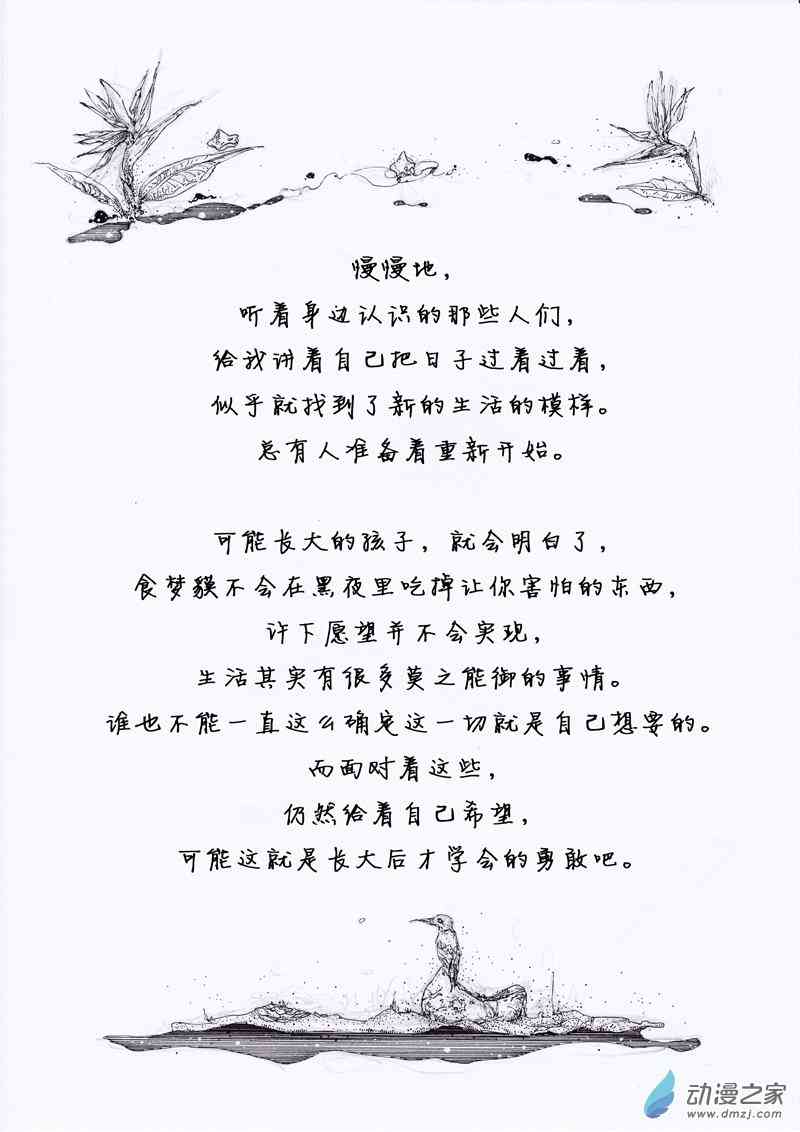 慢慢地，
听着身边认识的那些人们，
给我讲着自己把日子过着过着，
似乎就找到了新的生活的模样。
总有人准备着重新开始。
可能长大的孩子，就会明白了，
食梦貘不会在黑夜里吃掉让你害怕的东西，
许下愿望并不会实现，
生活其实有很多莫之能御的事情。
谁也不能一直这么确定这一切就是自己想要的。
而面对着这些，
仍然给着自己希望，
可能这就是长大后才学会的勇敢吧。
动漫之家
www.dmzj.com